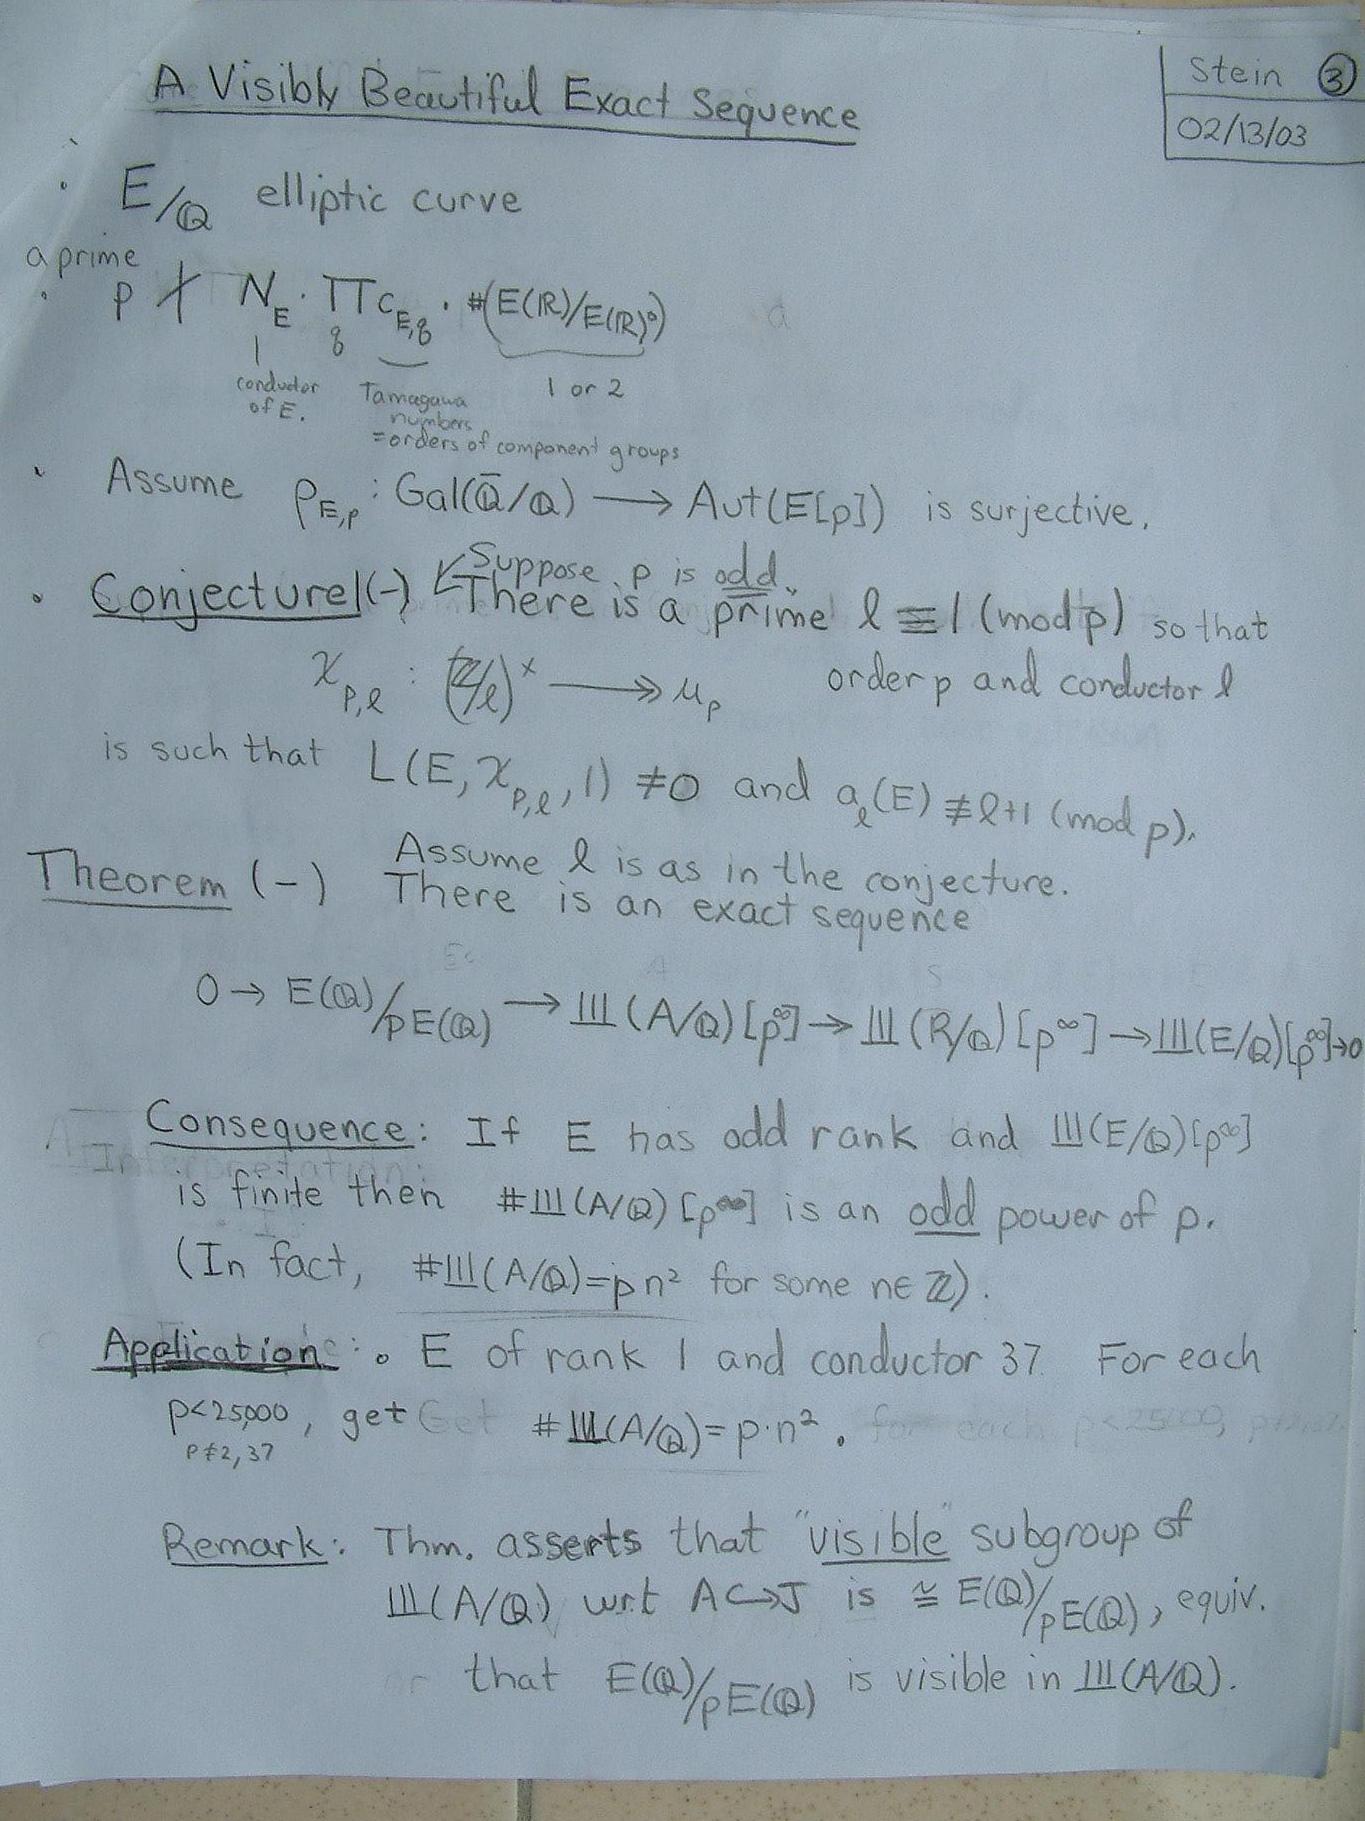 A Visibly Beautiful Exact Sequence
Stein ③
02/13/03
• E/ℚ elliptic curve
a prime
• p ∤ N_E · ∏_q c_{E,q} · #(E(ℝ)/E(ℝ)⁰)
conductor of E.
Tamagawa numbers
1 or 2
=orders of component groups
• Assume ρ_{E,p} : Gal(ℚ̄/ℚ) → Aut(E[p]) is surjective.
Suppose p is odd.
• Conjecture1(-) There is a prime ℓ ≡ 1 (mod p) so that
χ_{p,ℓ} : (ℤ/ℓ)^× ↠ μ_p order p and conductor ℓ
is such that L(E, χ_{p,ℓ}, 1) ≠ 0 and a_ℓ(E) ≢ ℓ+1 (mod p).
Assume ℓ is as in the conjecture.
Theorem (-) There is an exact sequence
0 → E(ℚ)/pE(ℚ) → Ш(A/ℚ)[p^∞] → Ш(R/ℚ)[p^∞] → Ш(E/ℚ)[p^∞] → 0
Consequence: If E has odd rank and Ш(E/ℚ)[p^∞]
is finite then #Ш(A/ℚ)[p^∞] is an odd power of p.
(In fact, #Ш(A/ℚ)=pn² for some n∈ℤ).
Application: • E of rank 1 and conductor 37. For each
p<25,000, get #Ш(A/ℚ)=p·n².
p≠2,37
Remark: Thm. asserts that "visible" subgroup of
Ш(A/ℚ) wrt A↪J is ≅ E(ℚ)/pE(ℚ), equiv.
that E(ℚ)/pE(ℚ) is visible in Ш(A/ℚ).